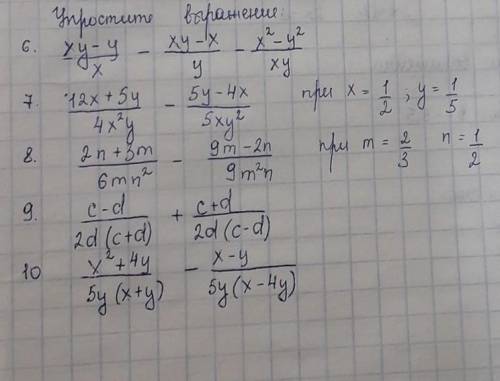 Упростите выражение:
6. (xy-y)/x - (xy-x)/y - (x²-y²)/xy
7. (12x+5y)/(4x²y) - (5y-4x)/(5xy²) при x = 1/2 ; y = 1/5
8. (2n+3m)/(6mn²) - (9m-2n)/(9m²n) при m = 2/3 n = 1/2
9. (c-d)/(2d(c+d)) + (c+d)/(2d(c-d))
10 (x²+4y)/(5y(x+y)) - (x-y)/(5y(x-4y))